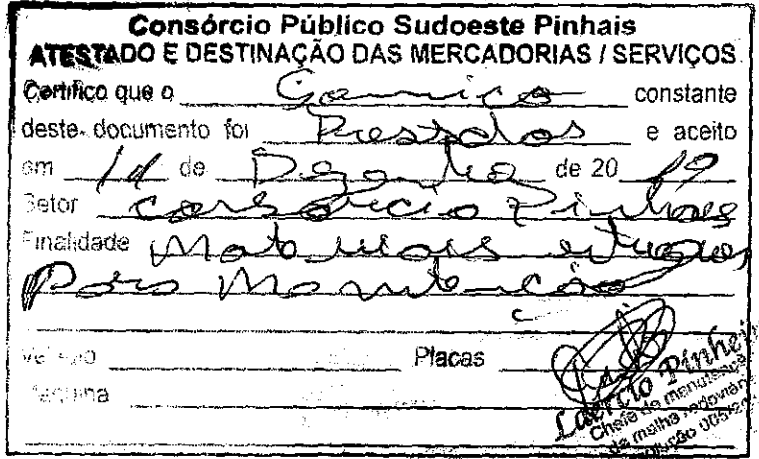 Consórcio Público Sudoeste Pinhais
ATESTADO E DESTINAÇÃO DAS MERCADORIAS / SERVIÇOS
Certifico que o Serviço constante
deste documento foi Prestados e aceito
em 11 de Dezembro de 20 19
Setor consórcio Pinhais
Finalidade Materiais entregues
Para Manutenção
Veículo Placas
Máquina
Laercio Pinhei
Chefe de manutenção
da malha rodoviár